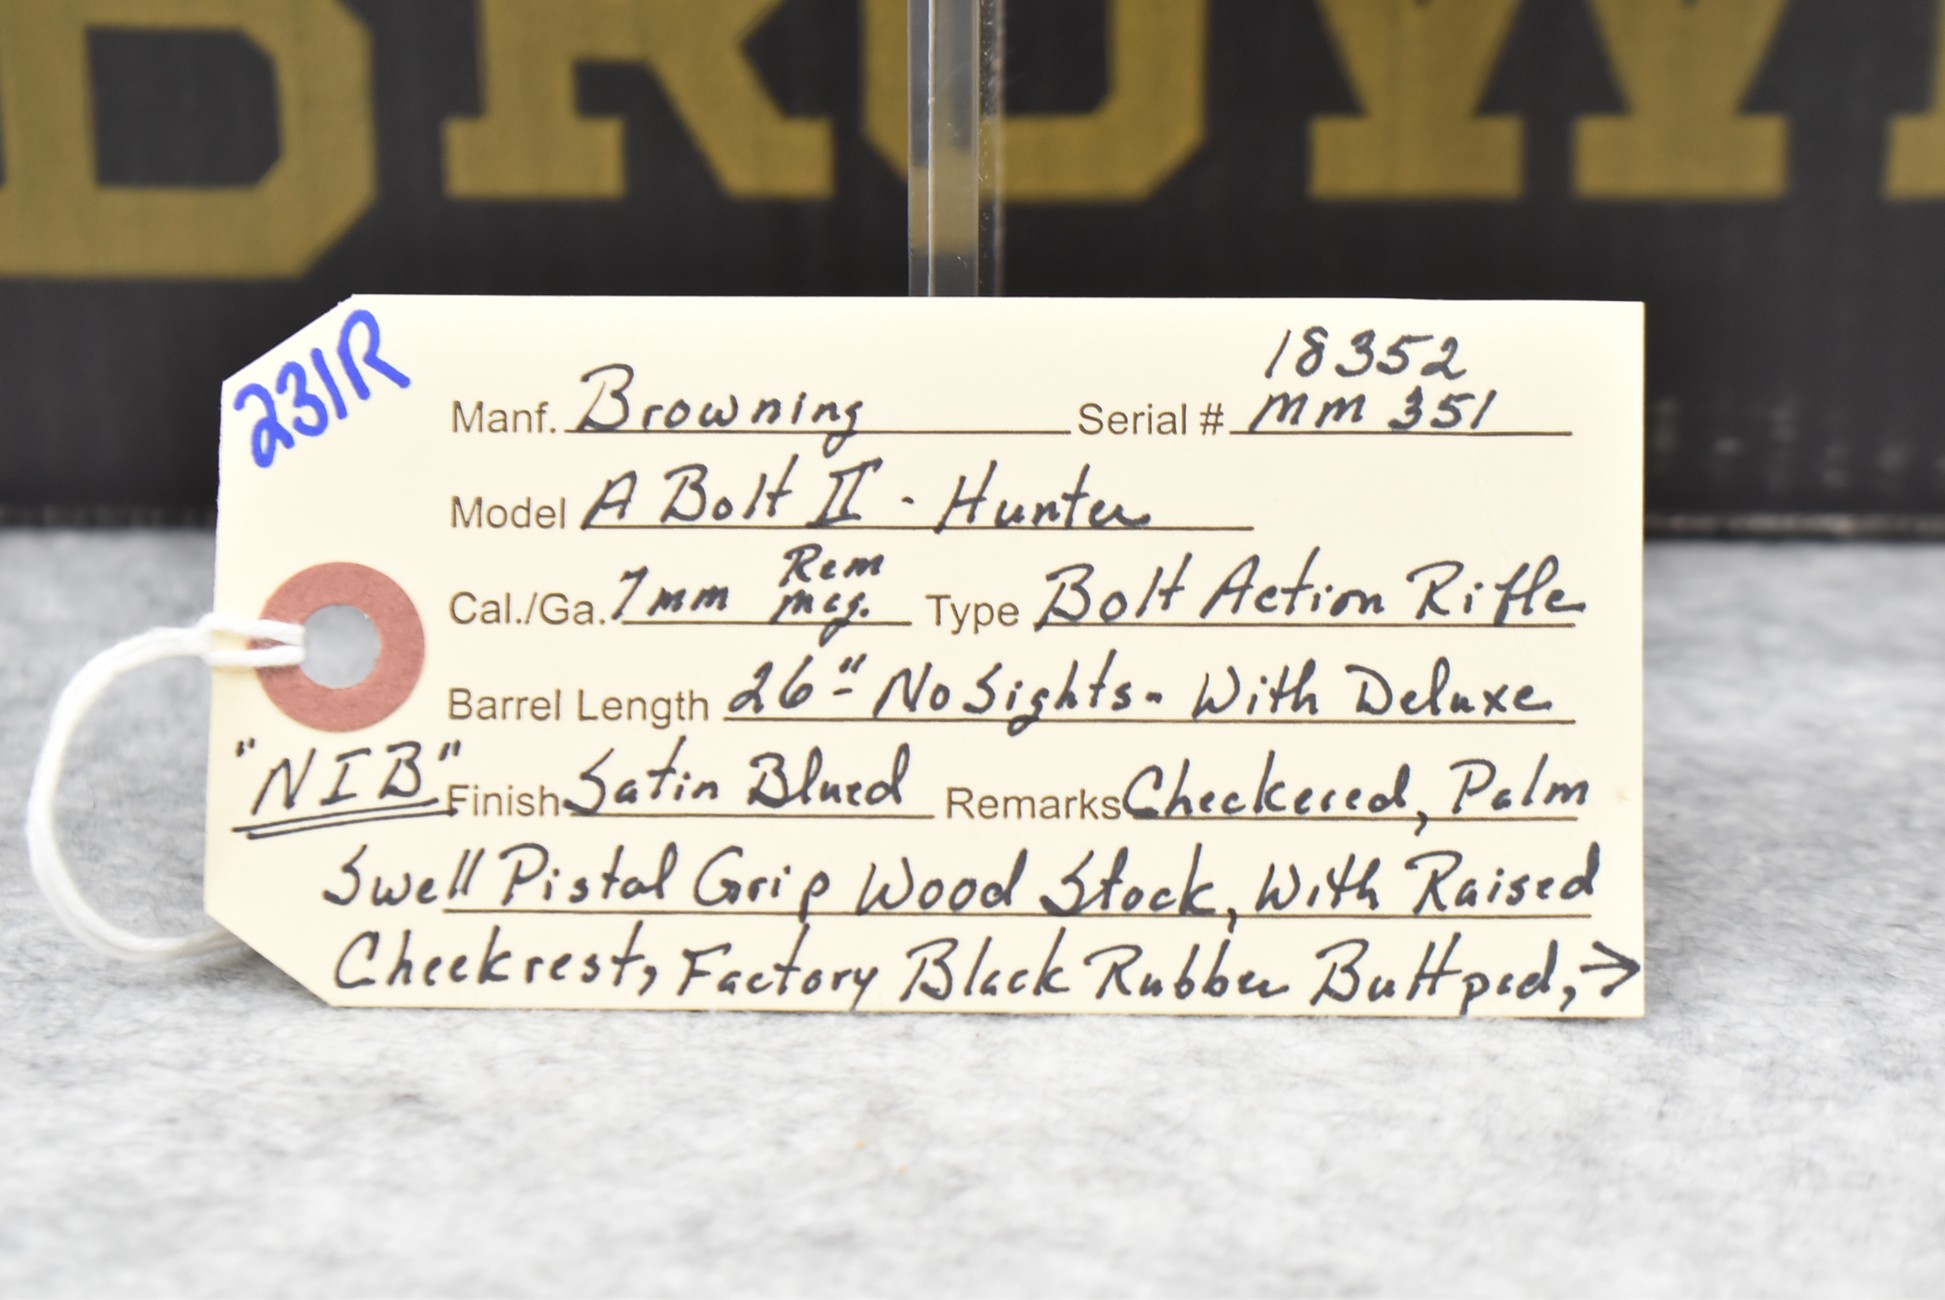 BROWN
231R
18352
Manf. Browning Serial # MM 351
Model A Bolt II - Hunter
Rem
Cal./Ga. 7mm Mag. Type Bolt Action Rifle
Barrel Length 26" - No Sights - With Deluxe
"NIB" Finish Satin Blued Remarks Checkered, Palm
Swell Pistal Grip Wood Stock, With Raised
Cheekrest, Factory Black Rubber Buttpad, →